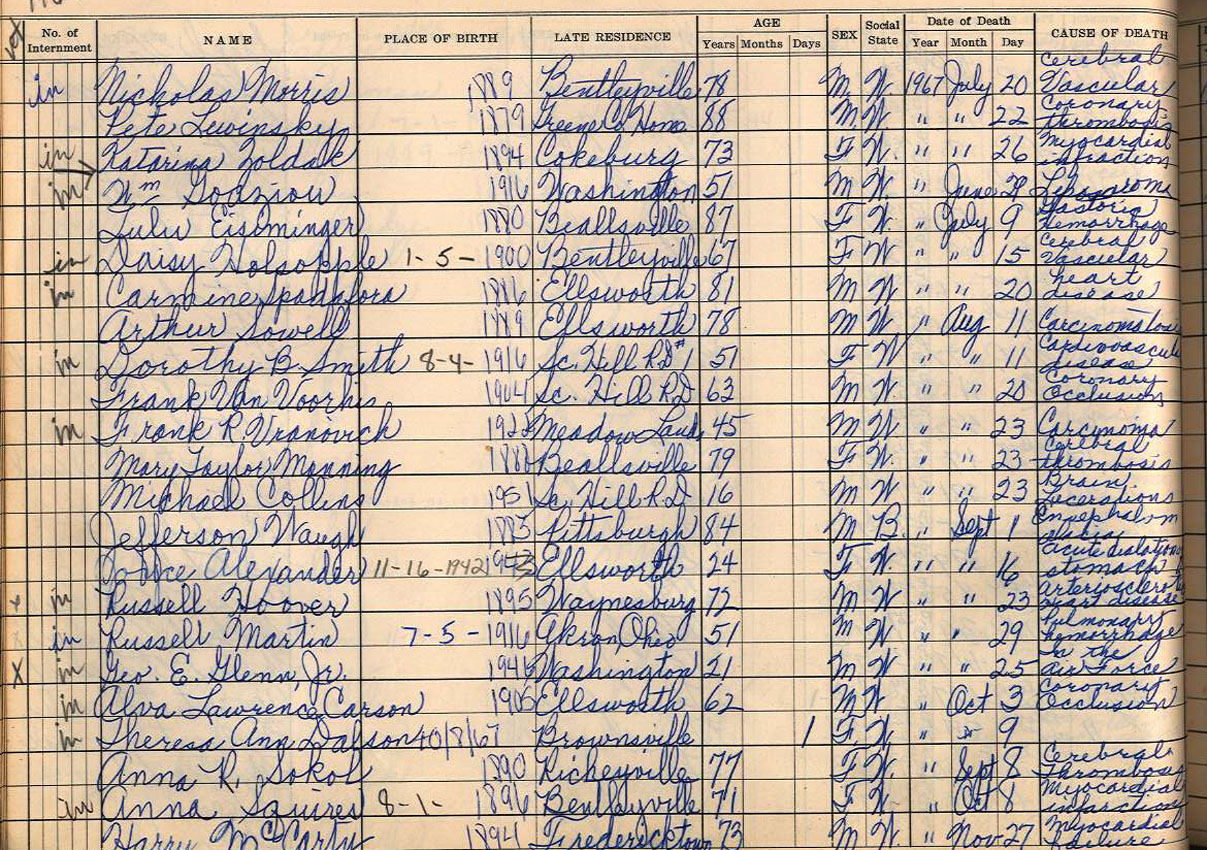 No. of Internment NAME PLACE OF BIRTH LATE RESIDENCE AGE Years Months Days SEX Social State Date of Death Year Month Day CAUSE OF DEATH
in Nicholas Morris 1889 Bentleyville 78 M W 1967 July 20 Cerebral Vascular
Pete Lewinsky 1879 Greene Co Home 88 M W. " " 22 Coronary thrombosis
in Katarina Zoldak 1894 Cokeburg 73 F W. " " 26 Myocardial infraction
in Wm Godziou 1916 Washington 51 M W. " June
Lulu Eisominger 1880 Beallsville 87 F W. " July 9 Hemorrhage
in Daisy Holsopple 1-5- 1900 Bentleyville 67 F W. " " 15 Cerebral Vascular
in Carmine Spadafora 1886 Ellsworth 81 M W. " " 20 heart disease
Arthur Sowell 1889 Ellsworth 78 M W " Aug 11
in Dorothy B. Smith 8-4- 1916 Sc. Hill RD#1 51 F W " " 11 disease
Frank Van Voorhis 1904 Sc. Hill RD 63 M W. " " 20 Coronary Occlusion
in Frank R. Vranovich 1922 Meadow Land 45 M W. " " 23 Carcinoma
Mary Taylor Manning 1888 Beallsville 79 F W. " " 23 Cerebral thrombosis
Michael Collins 1951 Sc. Hill R.D. 16 M W. " " 23 Brain Lacerations
Jefferson Waugh 1883 Pittsburgh 84 M B. " Sept 1
Alexander 11-16-1942 1943 Ellsworth 24 F W. " " 16 acute stomach
x in Russell Hoover 1895 Waynesburg 72 M W. " " 23 heart disease
in Russell Martin 7-5- 1916 Akron, Ohio 51 M W. " " 29 Pulmonary hemorrhage
X in Geo. E. Glenn, Jr. 1946 Washington 21 M W. " " 25 In the Air Force
in Alva Lawrence Carson 1905 Ellsworth 62 M W. " Oct 3 Coronary Occlusion
in Theresa Ann 10/8/67 Brownsville 1 F W. " 9
Anna R. Sokol 1890 Richeyville 77 F W. " Sept 8 Cerebral Thrombosis
in Anna Squires 8-1- 1896 Bentleyville 71 F W. " Oct 8 Myocardial infarction
Harry McCarty 1894 Fredericktown 73 M W. " Nov 27 Myocardial failure